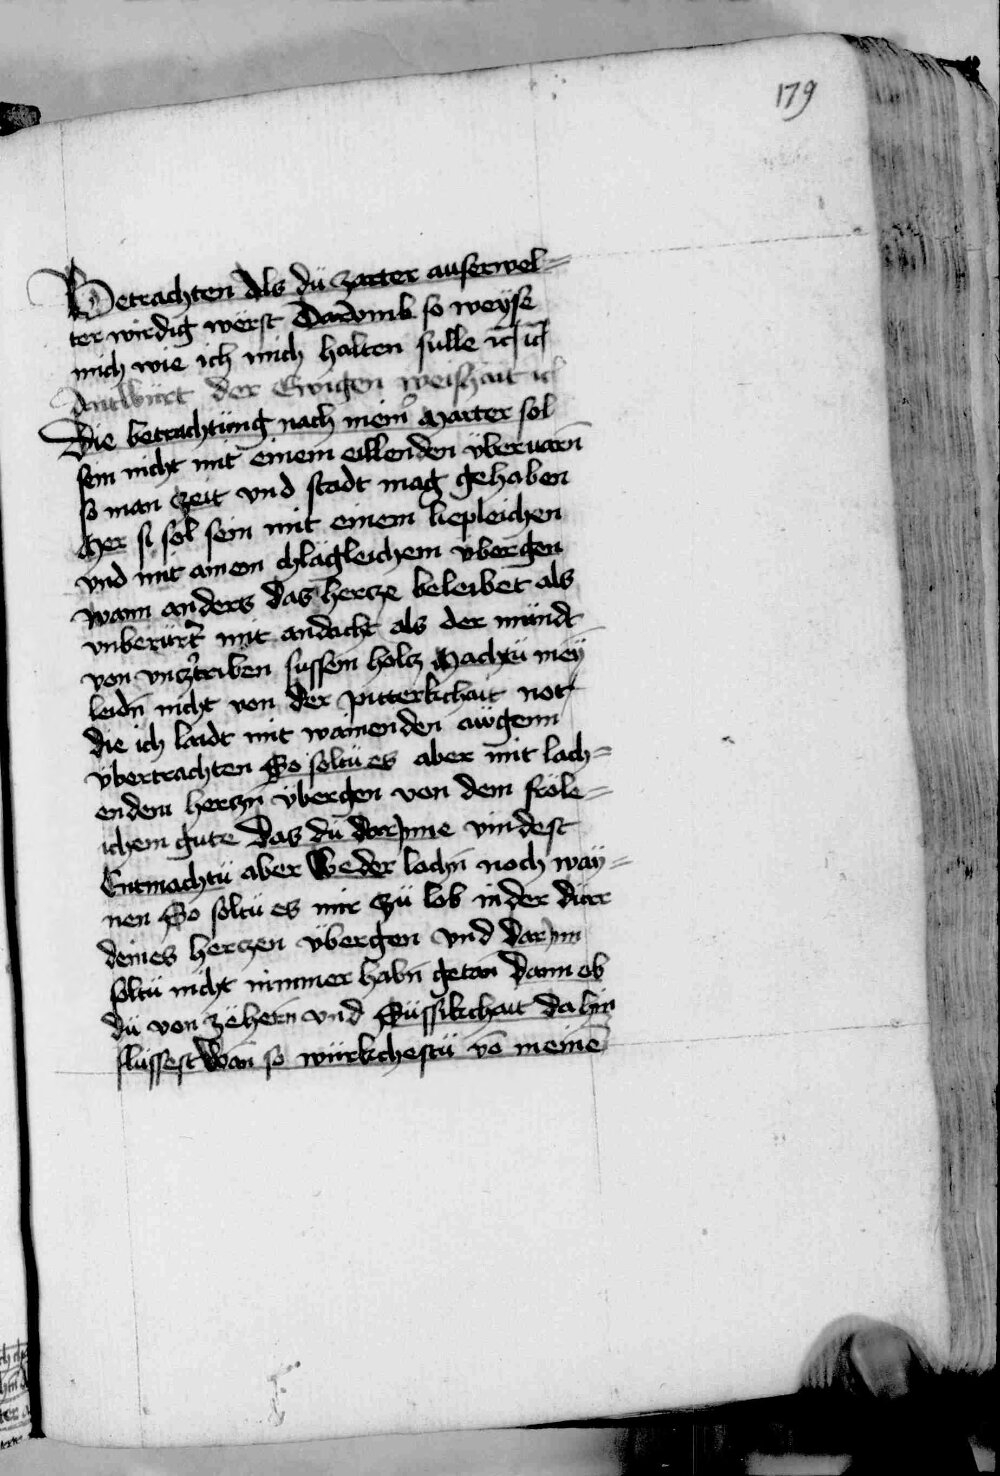 179
Betrachten Als dü zarter auserwel=
ter wirdig wërst Darvmb so weÿse
mich wie ich mich halten sulle
Antwürt der Ewigen weishait
Die betrachtüng nach meinˀ Marter sol
sein nicht mit einem eillenden übervarn̄
so man Czeit vnd stadt mag gehaben
Mer si sol sein mit einem liepleichen
vnd mit ainem chlägleichem vbergen̄
wann anders das hercze beleibet als
vnberürt̉ mit andacht als der mündt
von vncztriben süssem holcz Machtü meÿ
leidn̄ nicht von der pitterkchait not
die ich laidt mit wainenden aügenn
übertrachten So soltü es aber mit lach=
endem herczn̄ übergen von dem fröle=
ichem gute Das dü darynne vindest
Entmachtü aber Weder lachn̄ noch waÿ=
nen So soltü es mir zü lob in der dürr
deines herczen übergen vnd darvm
soltü nicht nimmer habn̄ getan Dann ob
dü von zëhern vnd Süssikchait da hin
flüssest Wan̄ so würkchestü vō meinē